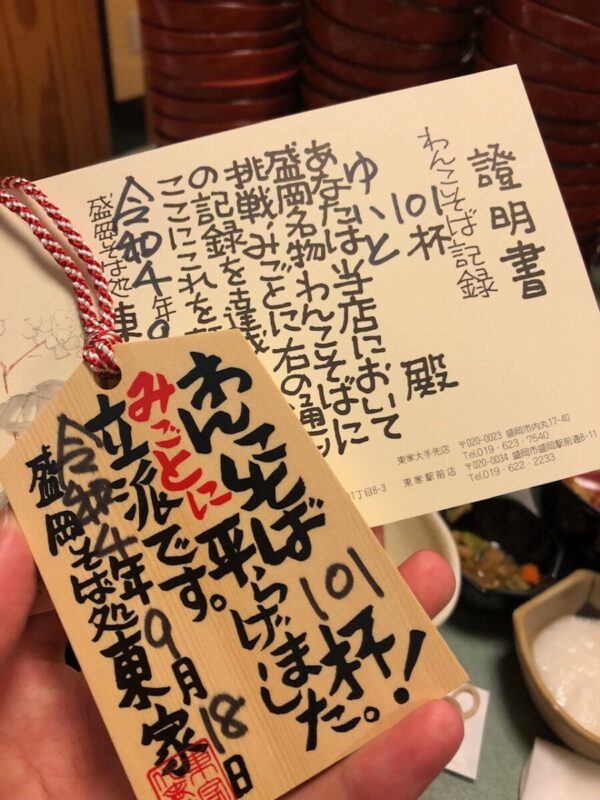 證明書
わんこそば記録
101杯
ゆいと 殿
あなたは当店において
盛岡名物わんこそばに
挑戦みごとに右の通り
の記録を達成
ここにこれを
令和4年9
盛岡そば処 東
東家大手先店 〒020-0023 盛岡市内丸17-40
Tel.019・623・7540
東家駅前店 〒020-0034 盛岡市盛岡駅前通8-11
Tel.019・622・2233
1丁目8-3
わんこそば101杯
みごとに平らげました。!
立派です。
令和4年9月18日
盛岡そば処東家